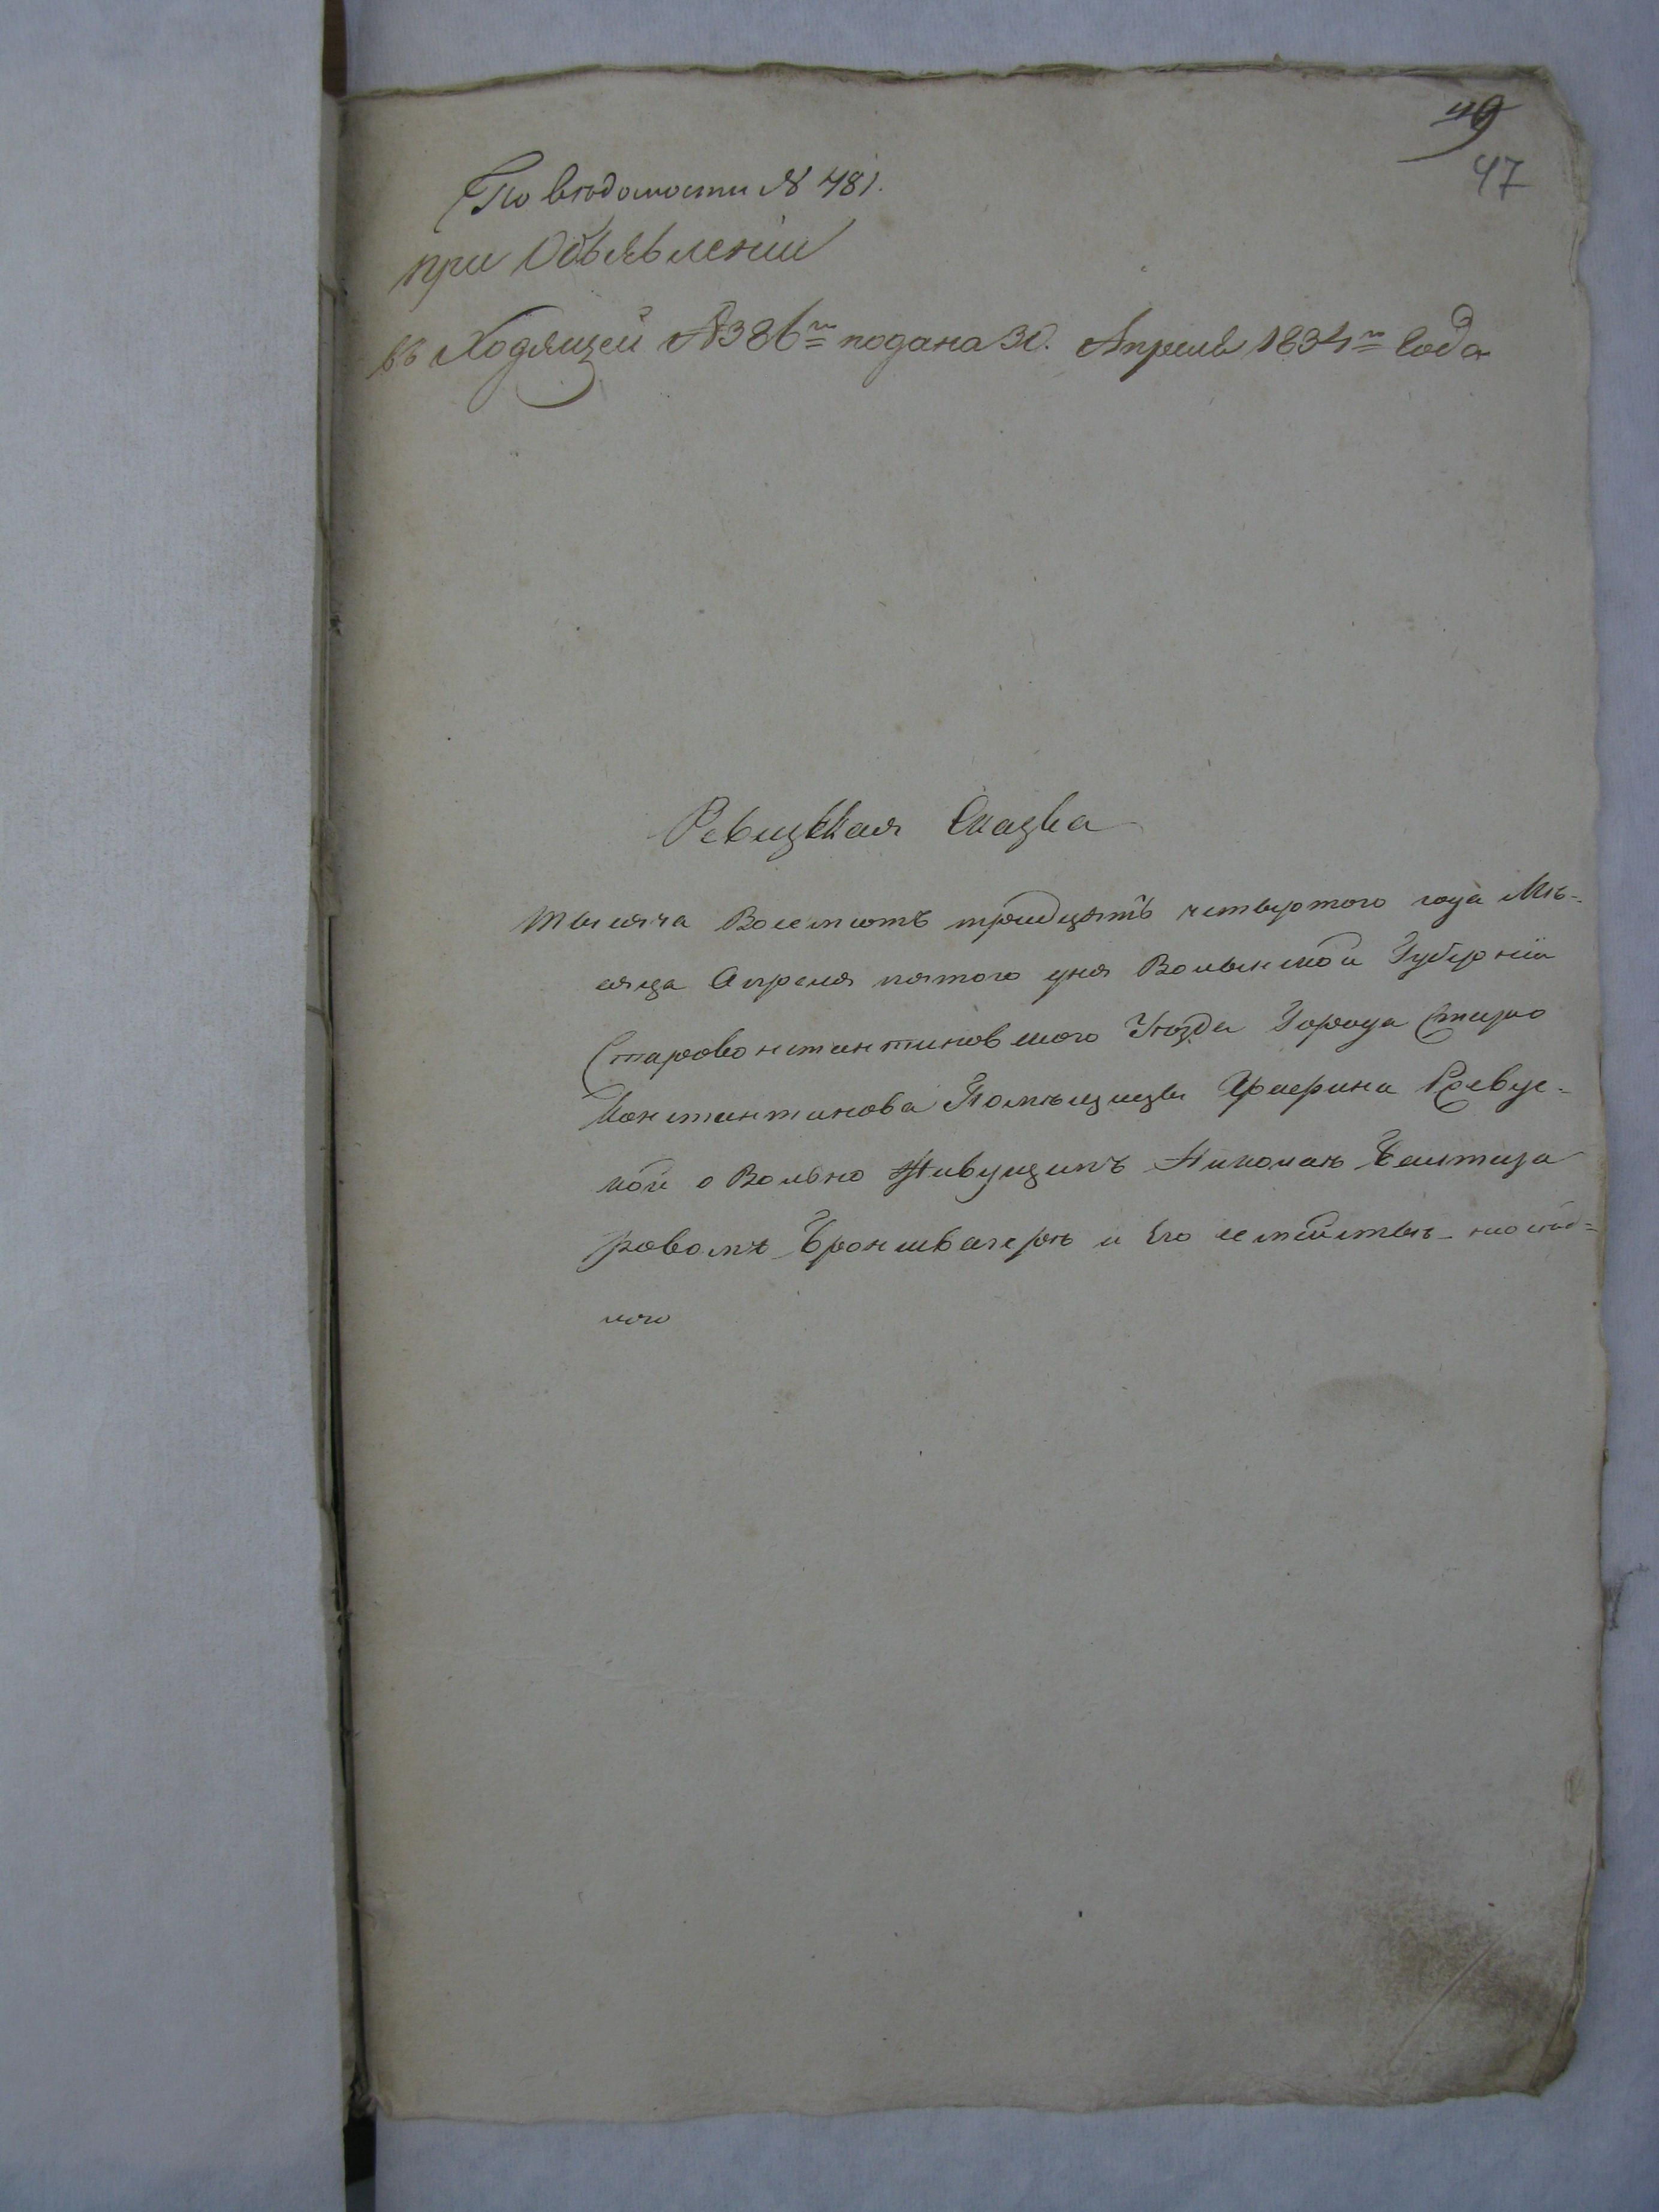 49
47
По вѣдомости № 481.
при Объявленіи
въ Ходящей № 386го подана 30. Апреля 1834го года
Ревизская Сказка
Тысяча Восемсотъ тридцять четвертого года Мѣ-
сяца Апреля пятого дня Волынской Губерніи
Староконстантиновского Уѣзда Города Старо
Константинова Помѣщицы Ревус-
кой о Вольно Живущимъ Николаѣ
ровомъ и Его